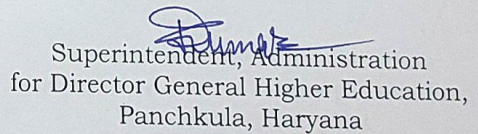 Superintendent, Administration
for Director General Higher Education,
Panchkula, Haryana